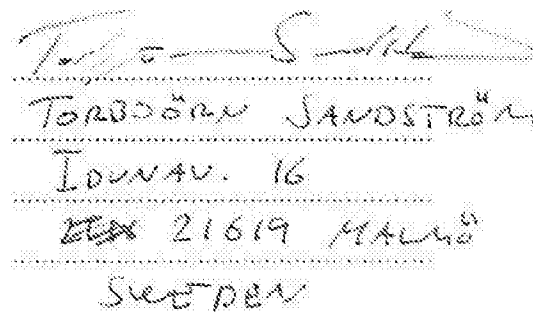 TORBJÖRN SANDSTRÖM
IDUNAV. 16
21619 MALMÖ
SWEDEN